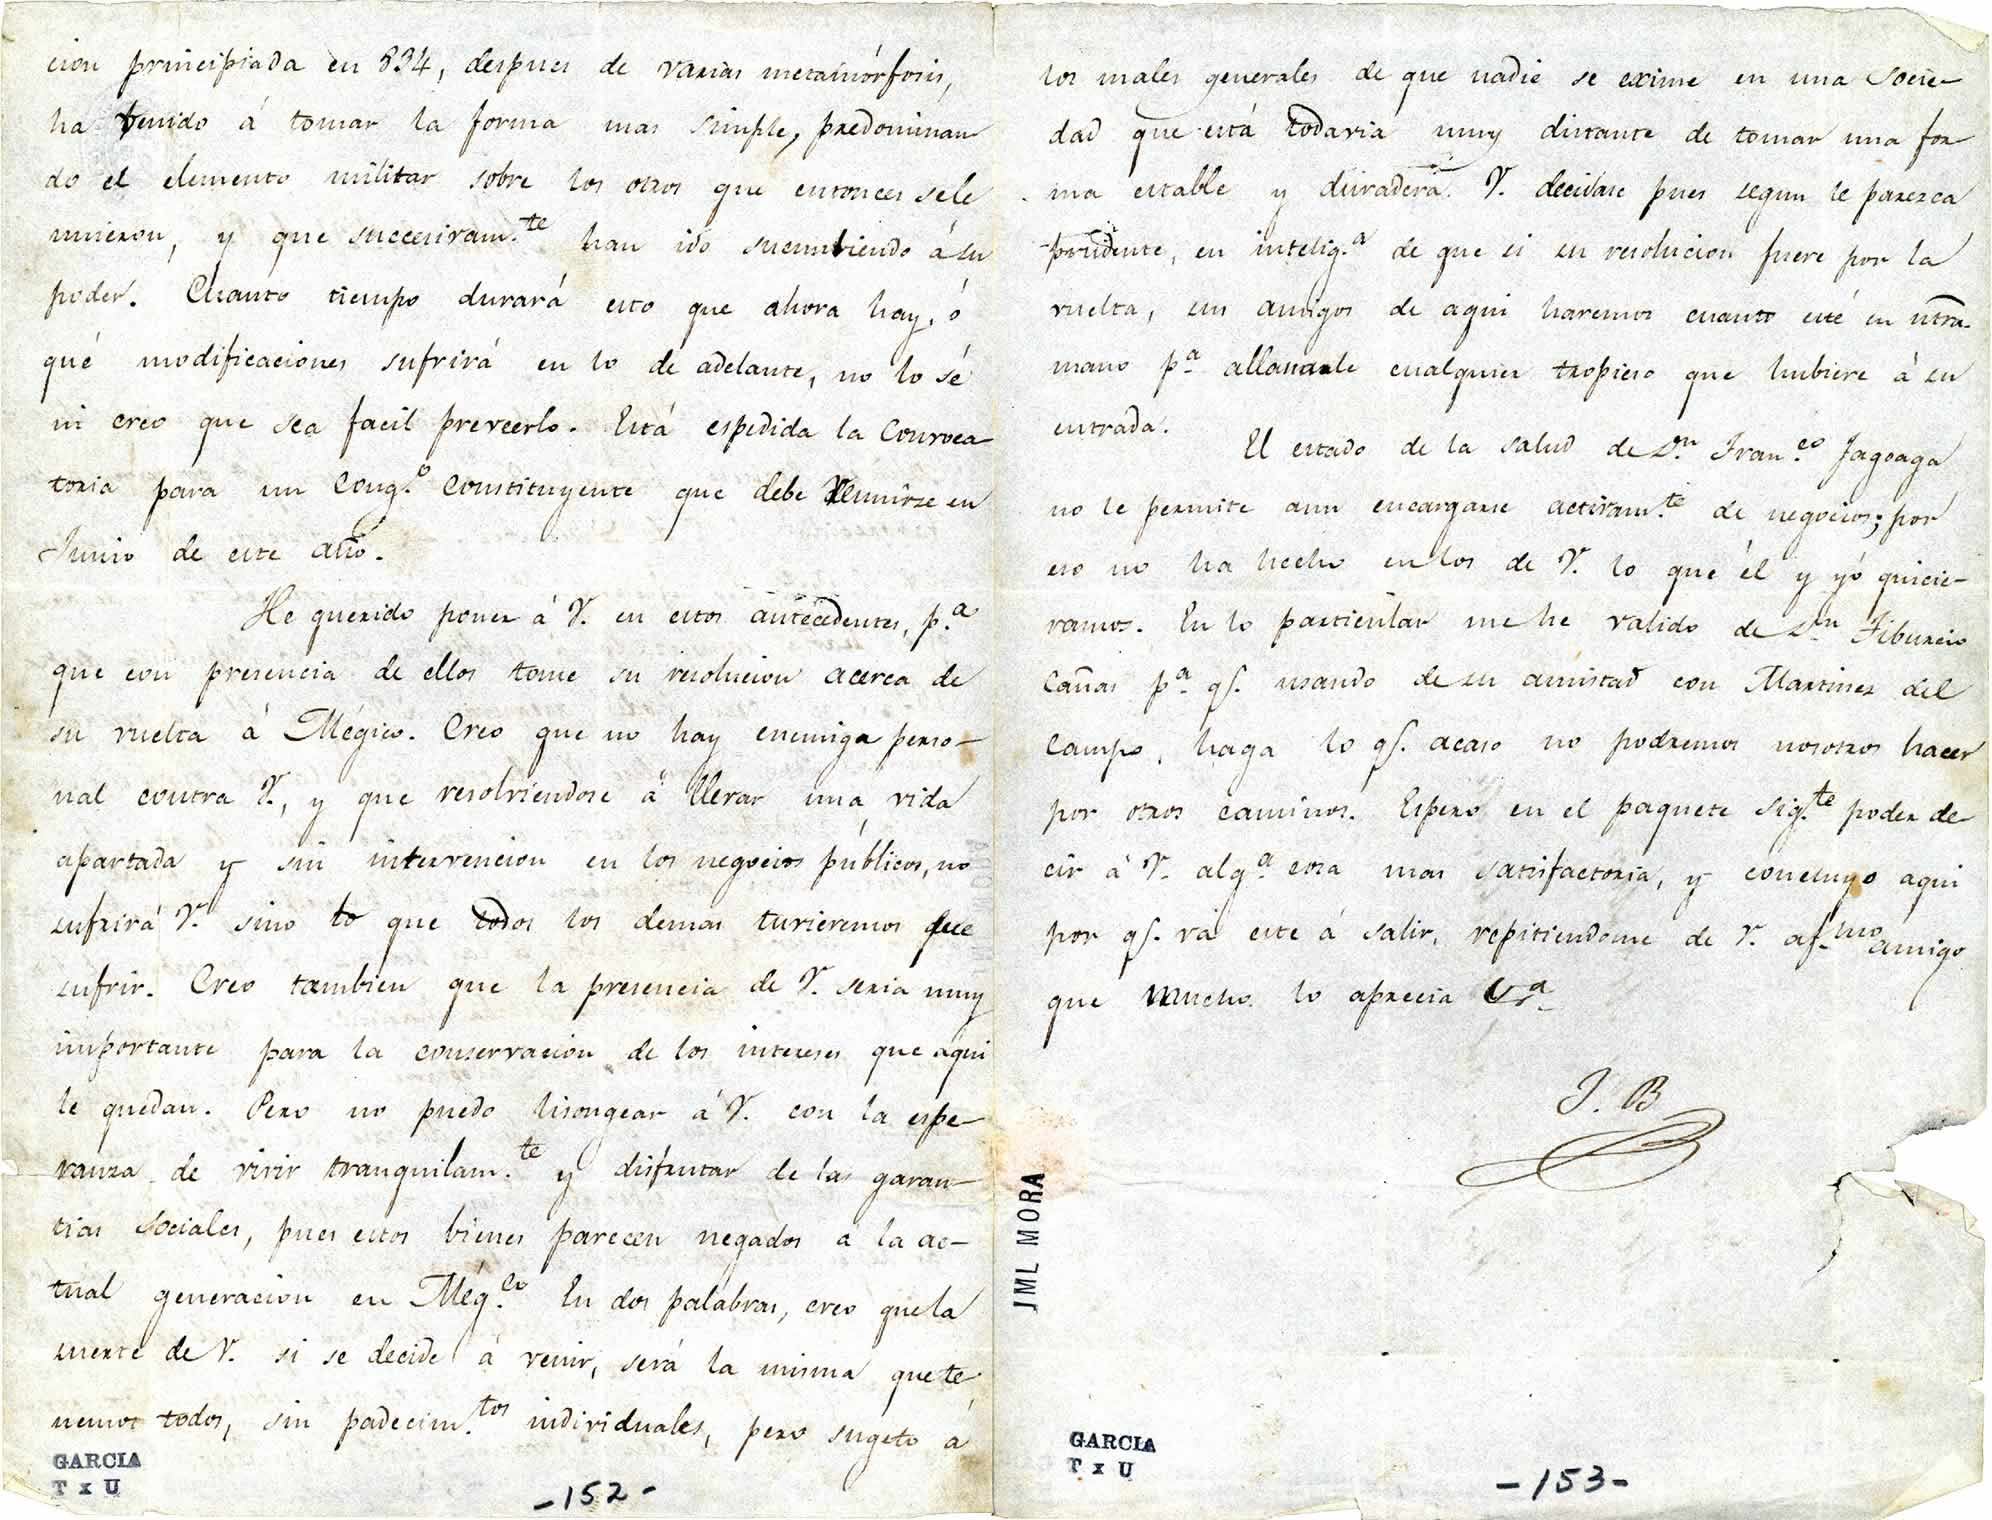 cion principiada en 834, despues de varias metamórfosis,
ha venido á tomar la forma mas simple, predominan
do el elemento militar sobre los otros que entonces sele
unieron, y que succesivam.te han ido sucumbiendo á su
poder. Cuanto tiempo durará esto que ahora hay, ó
qué modificaciones sufrirá en lo de adelante, no lo sé
ni creo que sea facil preveerlo. Está espedida la Convoca
toria para un Cong.o Constituyente que debe reunirse en
Junio de este año.
He querido poner á V. en estos antecedentes, p.a
que con presencia de ellos tome su resolucion acerca de
su vuelta á Mégico. Creo que no hay enemiga perso-
nal contra V., y que resolviendose á llevar una vida
apartada y sin intervencion en los negocios públicos, no
sufrirá V. sino lo que todos los demas tuvieremos que
sufrir. Creo tambien que la presencia de V. seria muy
importante para la conservacion de los intereses que aqui
le quedan. Pero no puedo lisongear á V. con la espe-
ranza de vivir tranquilam.te y disfrutar de las garan-
tias sociales, pues estos bienes parecen negados a la ac-
tual generacion en Még.co En dos palabras, creo que la
suerte de V. si se decide á venir, será la misma que te
nemos todos, sin padecim.tos individuales, pero sugeto á
GARCIA
T x U
-152-
los males generales de que nadie se exime en una socie-
dad que está todavia muy distante de tomar una for
ma estable y duradera. V. decidase pues segun le parezca
prudente, en intelig.a de que si su resolucion fuere por la
vuelta, sus amigos de aqui haremos cuanto esté en ntra.
mano p.a allanarle cualquier tropieso que hubiere á su
entrada.
El estado de la salud de Dn. Fran.co Fagoaga
no le permite aun encargarse activam.te de negocios; por
eso no ha hecho en los de V. lo que él y yó quicie-
ramos. En lo particular me he valido de Dn. Tiburcio
Cañas p.a q.e usando de su amistad con Martinez del
Campo, haga lo q.e acaso no podremos nosotros hacer
por otros caminos. Espero en el paquete sig.te poder de-
cir á V. alg.a cosa mas satisfactoria, y concluyo aqui
por q.e va este á salir, repitiendome de V. af.mo amigo
que mucho lo aprecia
J. B
JML MORA
GARCIA
T x U
-153-